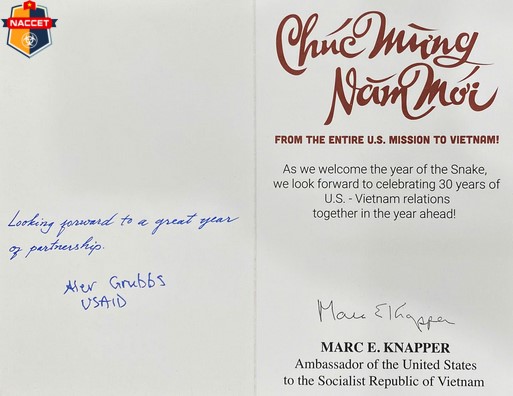 NACCET
Looking forward to a great year
of partnership.
Alex Grubbs
USAID
Chúc Mừng
Năm Mới
FROM THE ENTIRE U.S. MISSION TO VIETNAM!
As we welcome the year of the Snake,
we look forward to celebrating 30 years of
U.S. - Vietnam relations
together in the year ahead!
Marc E Knapper
MARC E. KNAPPER
Ambassador of the United States
to the Socialist Republic of Vietnam